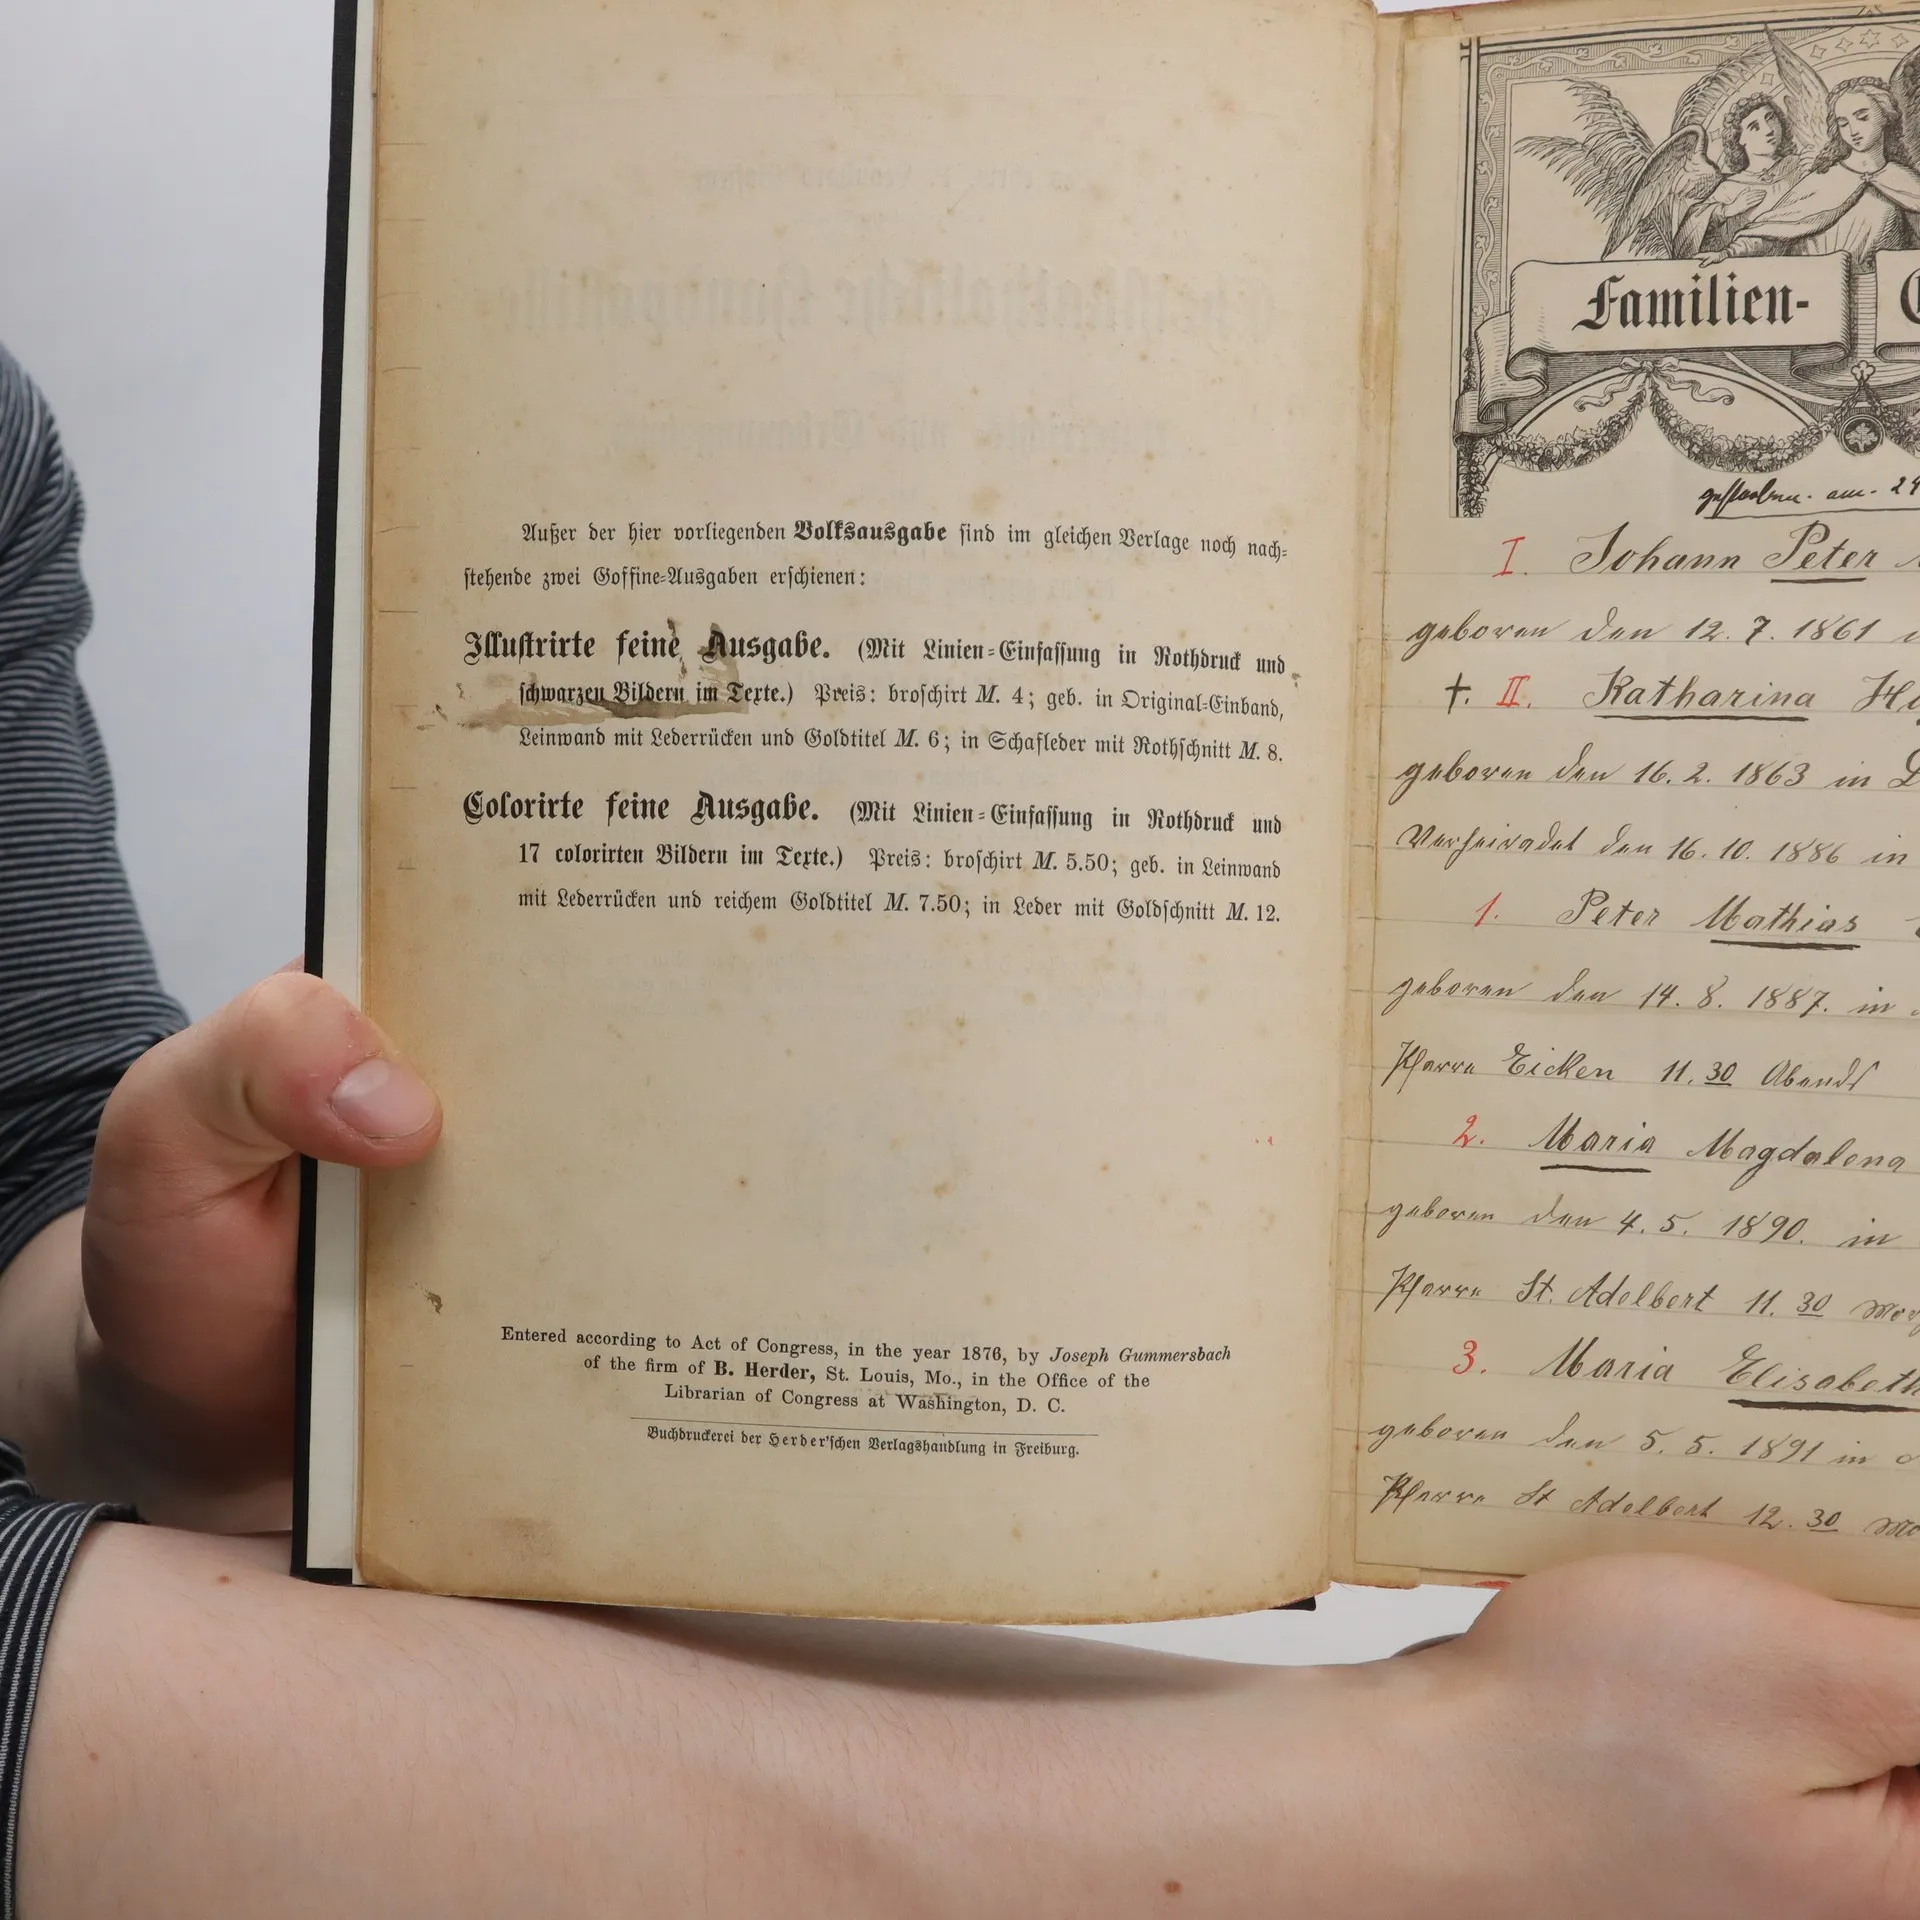 Außer der hier vorliegenden Volksausgabe sind im gleichen Verlage noch nach-
stehende zwei Goffine-Ausgaben erschienen:
Illustrirte feine Ausgabe. (Mit Linien-Einfassung in Rothdruck und
schwarzen Bildern im Texte.) Preis: broschirt M. 4; geb. in Original-Einband,
Leinwand mit Lederrücken und Goldtitel M. 6; in Schafleder mit Rothschnitt M. 8.
Colorirte feine Ausgabe. (Mit Linien-Einfassung in Rothdruck und
17 colorirten Bildern im Texte.) Preis: broschirt M. 5.50; geb. in Leinwand
mit Lederrücken und reichem Goldtitel M. 7.50; in Leder mit Goldschnitt M. 12.
Entered according to Act of Congress, in the year 1876, by Joseph Gummersbach
of the firm of B. Herder, St. Louis, Mo., in the Office of the
Librarian of Congress at Washington, D. C.
Buchdruckerei der Herder'schen Verlagshandlung in Freiburg.
Familien-
gestorben. am. 24
I. Johann Peter
geboren den 12. 7. 1861
†. II. Katharina
geboren den 16. 2. 1863 in
Verheiradet den 16. 10. 1886 in
1. Peter Mathias
geboren den 14. 8. 1887. in
Pfarre Eicken 11.30 Abends
2. Maria Magdalena
geboren den 4. 5. 1890. in
Pfarre St. Adelbert 11.30
3. Maria Elisabeth
geboren den 5. 5. 1891 in
Pfarre St Adelbert 12.30